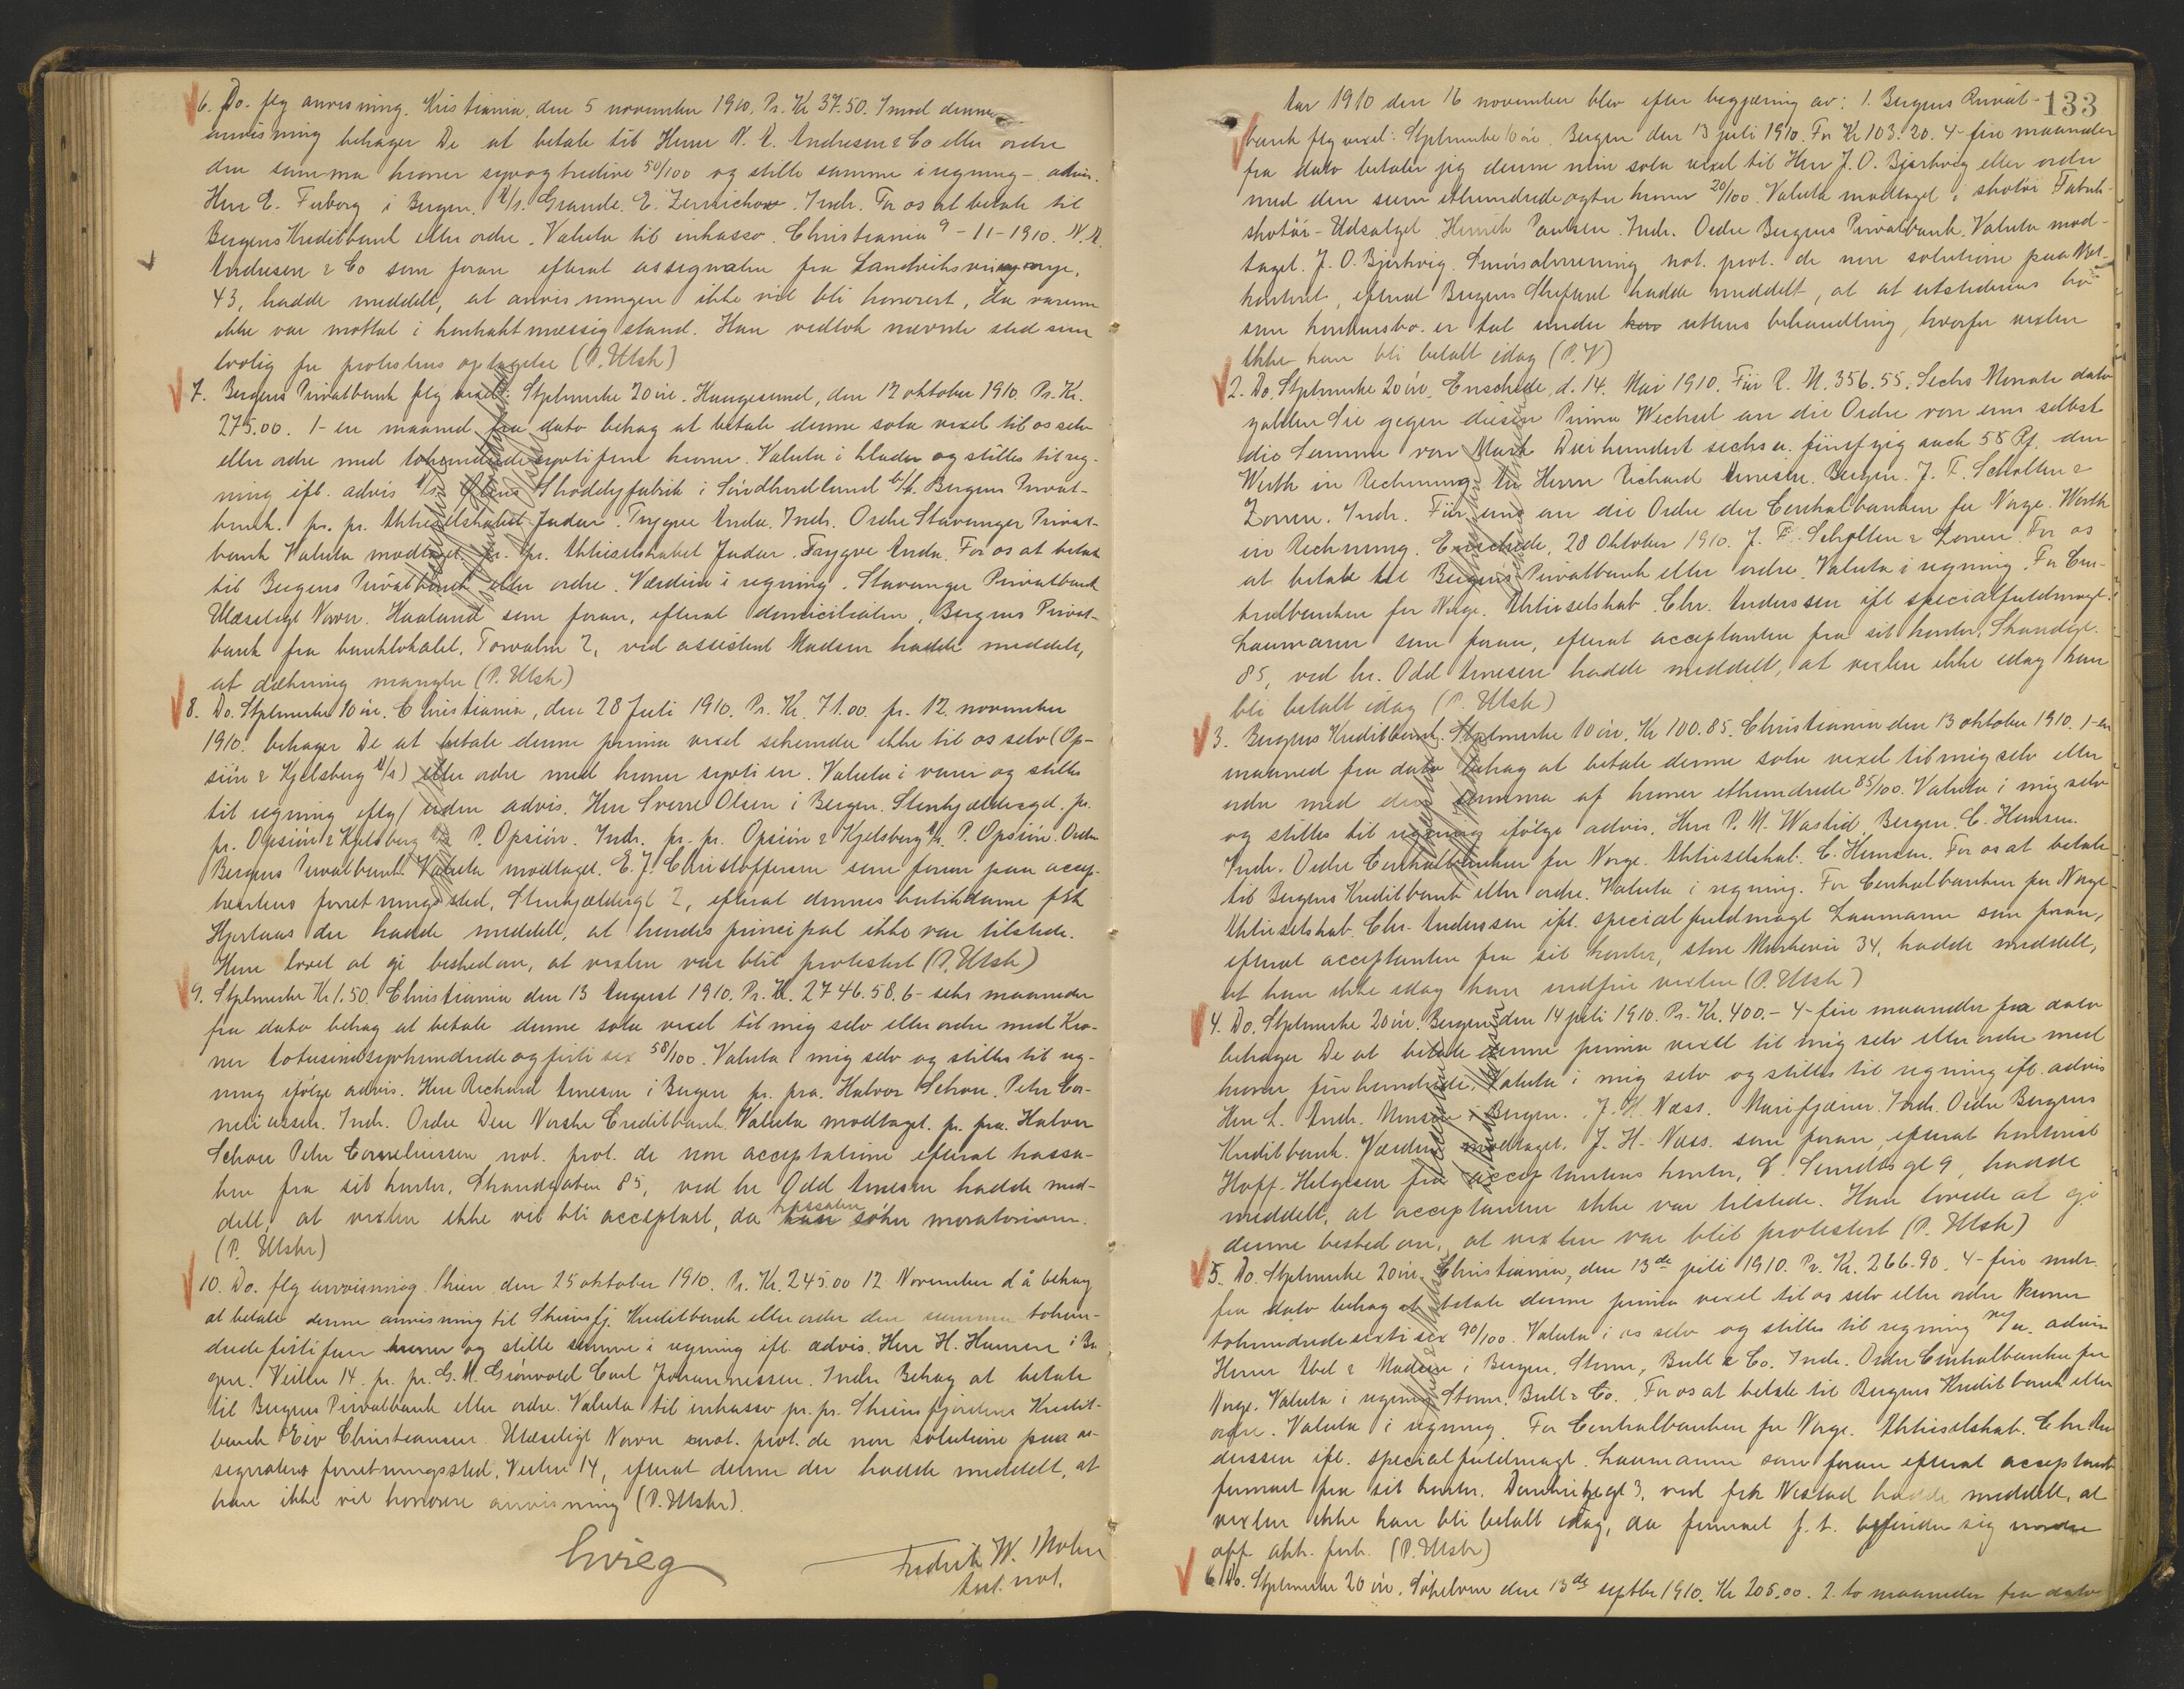 6. Do. flg anvisning. Kristiania, den 5 november 1910. Pr. Kr 37.50. Imod denne
anvisning behager De at betale til Herrer N. A. Andresen & Co eller ordre
den summa kroner syvogtredive 50/100 og stille samme i regning - advis.
Herr E. Ferborg i Bergen. A/s. Grande. E. Zernichow. Indr. For os at betale til
Bergens Kreditbank eller ordre. Valuta til inkasso. Christiania 9-11-1910. N. A.
Andresen & Co som foran efterat assignaten fra Landviksvingene,
43, hadde meddelt, at anvisningen ikke vil bli honorert, da varerne
ikke var mottat i kontraktmæssig stand. Han vedtok nævnte sted som
lovlig for protestens optagelse (P. Utsk)
7. Bergens Privatbank flg vexel: Stplmerke 20 øre. Haugesund, den 12 oktober 1910. Pr. Kr.
275.00. 1- en maaned fra dato behag at betale denne sola vexel til os selv
eller ordre med tohundredesyttifem kroner. Valuta i klæder og stilles til reg-
ning ifl. advis A/s. Shoddyfabrik i Søndhordland b/b. Bergens Privat-
bank. pr. pr. Aktieselskabet Jadar. Trygve Anda. Indr. Ordre Stavanger Privat-
bank Valuta modtaget pr. pr. Aktieselskabet Jadar. Trygve Anda. For os at betale
til Bergens Privatbank eller ordre. Værdien i regning. Stavanger Privatbank
Ulæseligt Navn. Haaland som foran, efterat domiciliaten, Bergens Privat-
bank fra banklokalet, Torvalm 2, ved assistent Madsen hadde meddelt,
at dækning mangler (P. Utsk)
8. Do. Stplmerke 10 øre. Christiania, den 28 Juli 1910. Pr. Kr. 71.00. pr. 12. november
1910. behager De at betale denne prima vexel sekunda ikke til os selv (Op-
siøn & Kjelsberg A/s) eller ordre med kroner sytti en. Valuta i varer og stilles
til regning eftg/ uden advis. Herr Sverre Olsen i Bergen. Stenkjældergd. pr.
pr. Opsiøn & Kjelsberg A/s P. Opsiøn. Indr. pr. pr. Opsiøn & Kjelsberg A/s. P. Opsiøn. Ordre
Bergens Privatbank. Valuta modtaget. E. J. Christoffersen som foran paa accep-
tantens forretningssted, Stenkjældergt 2, efterat dennes butikdame frk
Hjertaas der hadde meddelt, at hendes principal ikke var tilstede.
Hun lovet at gi beskedom, at vexlen var blit protestert (P. Utsk)
9. Stplmerke Kr 1.50. Christiania den 13 August 1910. Pr. Kr. 2746.58. 6- seks maaneder
fra dato behag at betale denne sola vexel til mig selv eller ordre med Kro-
ner totusensyvhundrede og førti sex 58/100. Valuta i mig selv og stilles til reg-
ning ifølge advis. Herr Richard Arnesen i Bergen pr. pra. Halvor Schou. Peter Cor-
neliussen. Indr. Ordre Den Norske Creditbank. Valuta modtaget. pr. pra. Halvor
Schou Peter Corneliussen not. prot. de non acceptatione efterat trassa-
ten fra sit kontor, Strandgaten 85, ved hr Odd Arnesen hadde med-
delt, at vexlen ikke vil bli acceptert, da trassaten søker moratorium.
(P. Utskr)
10. Do. flg anvisning Skien den 25 oktober 1910. Pr. Kr. 245.00 12 November d å behag
at betale denne anvisning til Skiensfj. Kreditbank eller ordre den summa tohun-
drede førtifem kroner og stille samme i regning ifl. advis. Herr H. Hansen i Ber
gen. Veiten 14. pr. pr. G. M. Grønvold Carl Johannessen. Indr. Behag at betale
til Bergens Privatbank eller ordre. Valuta til inkasso pr. pr. Skiensfjordens Kredit-
bank Eiv Christiansen. Ulæseligt Navn not. prot. de non solutione paa as-
signatens forretningssted, Veiten 14, efterat denne der hadde meddelt, at
han ikke vil honorere anvisning (P. Utskr).
Fredrik W. Mohn
kst. not.
133
Aar 1910 den 16 november blev efter begjæring av: 1. Bergens Privat-
bank flg vexel: Stplmerke 10 øre. Bergen den 13 juli 1910. For Kr 103.20. 4- fire maaneder
fra dato betaler jeg denne min sola vexel til Herr J. O. Bjørkvig eller ordre
med den sum ethundrede ogtre kroner 20/100. Valuta modtaget i skotøi Fabrik-
skotøi-Udsalget. Henrik Paulsen. Indr. Ordre Bergens Privatbank. Valuta mod-
taget. J. O. Bjørkvig. Smørsalvrenning not. prot. de non solutione paa Not-
kontoret, efterat Bergens Skifteret hadde meddelt, at utstederens bo
som konkursbo er tat under rettens behandling, hvorfor vexlen
ikke kan bli betalt idag (P. V)
2. Do. Stplmerke 20 øre. Enschede, d. 14. Mai 1910. Für R. M. 356.55. Sechs Monate dato
zahlen Sie gegen diesen Prima Wechsel an die Ordre von uns selbst
die Summe von Mark Dreihundert sechs u. fünfzig auch 55 Pf. den
Werth in Rechnung. An Herrn Richard Arnesen. Bergen. J. F. Scholten &
Zonen. Indr. Für uns an die Ordre der Centralbanken for Norge. Werth
in Rechnung. Enschede, 28 Oktober 1910. J. F. Scholten & Zonen. For os
at betale til Bergens Privatbank eller ordre. Valuta i regning. For Cen-
tralbanken for Norge. Aktieselskab. Chr. Anderssen ifl specialfuldmagt.
Laumann som foran, efterat acceptanten fra sit kontor, Strandgt.
85, ved hr. Odd Arnesen hadde meddelt, at vexlen ikke idag kan
bli betalt idag (P. Utsk)
3. Bergens Kreditbank. Stplmerke 10 øre. Kr 100.85. Christiania den 13 oktober 1910. 1- en
maaned fra dato behag at betale denne sola vexel til mig selv eller
ordre med den summa af kroner ethundrede 85/100. Valuta i mig selv
og stilles til regning ifølge advis. Herr P. M. Wastid, Bergen. C. Hansen.
Indr. Ordre Centralbanken for Norge. Aktieselskab. C. Hansen. For os at betale
til Bergens Kreditbank eller ordre. Valuta i regning. For Centralbanken for Norge
Aktieselskab. Chr. Anderssen ifl. specialfuldmagt Laumann som foran,
efterat acceptanten fra sit kontor, store Markevei 34, hadde meddelt,
at han ikke idag kan indfri vexlen (P. Utsk)
4. Do. Stplmerke 20 øre. Bergen den 14 juli 1910. Pr. Kr. 400.- 4- fire maaneder fra dato
behager De at betale denne prima vexel til mig selv eller ordre med
kroner firehundrede. Valuta i mig selv og stilles til regning ifl. advis
Herr L. Andr. Monsen i Bergen. J. H. Næss. Marifjæren. Indr. Ordre Bergens
Kreditbank. Værdien modtaget. J. H. Næss. som foran, efterat kontorist
Hoff-Helgesen fra acceptantens kontor, E. Sundtsgt 9, hadde
meddelt, at acceptanten ikke var tilstede. Han lovede at gi
denne beskedom, at vexlen var blit protestert (P. Utsk)
5. Do. Stplmerke 20 øre. Christiania, den 13de juli 1910. Pr. Kr. 266.90. 4- fire mdr.
fra dato behag at betale denne prima vexel til os selv eller ordre Kroner
tohundredesexti sex 90/100. Valuta i os selv og stilles til regning m/u. advis
Herrer Abel & Madsen i Bergen. Storm, Bull & Co. Indr. Ordre Centralbanken for
Norge. Valuta i regning. Storm, Bull & Co. For os at betale til Bergens Kreditbank eller
ordre. Valuta i regning. For Centralbanken for Norge. Aktieselskab. Chr. An
derssen ifl. specialfuldmagt. Laumann som foran efterat acceptant-
firmaet fra sit kontor. Domkirkegt 3, ved frk Nestad hadde meddelt, at
vexlen ikke kan bli betalt idag, da firmaet f. t. befinder sig under
off. akk. forh. (P. Utskr)
6. Do. Stplmerke 20 øre. Søholm den 13de septbr 1910. Kr 205.00. 2. to maaneder fra dato